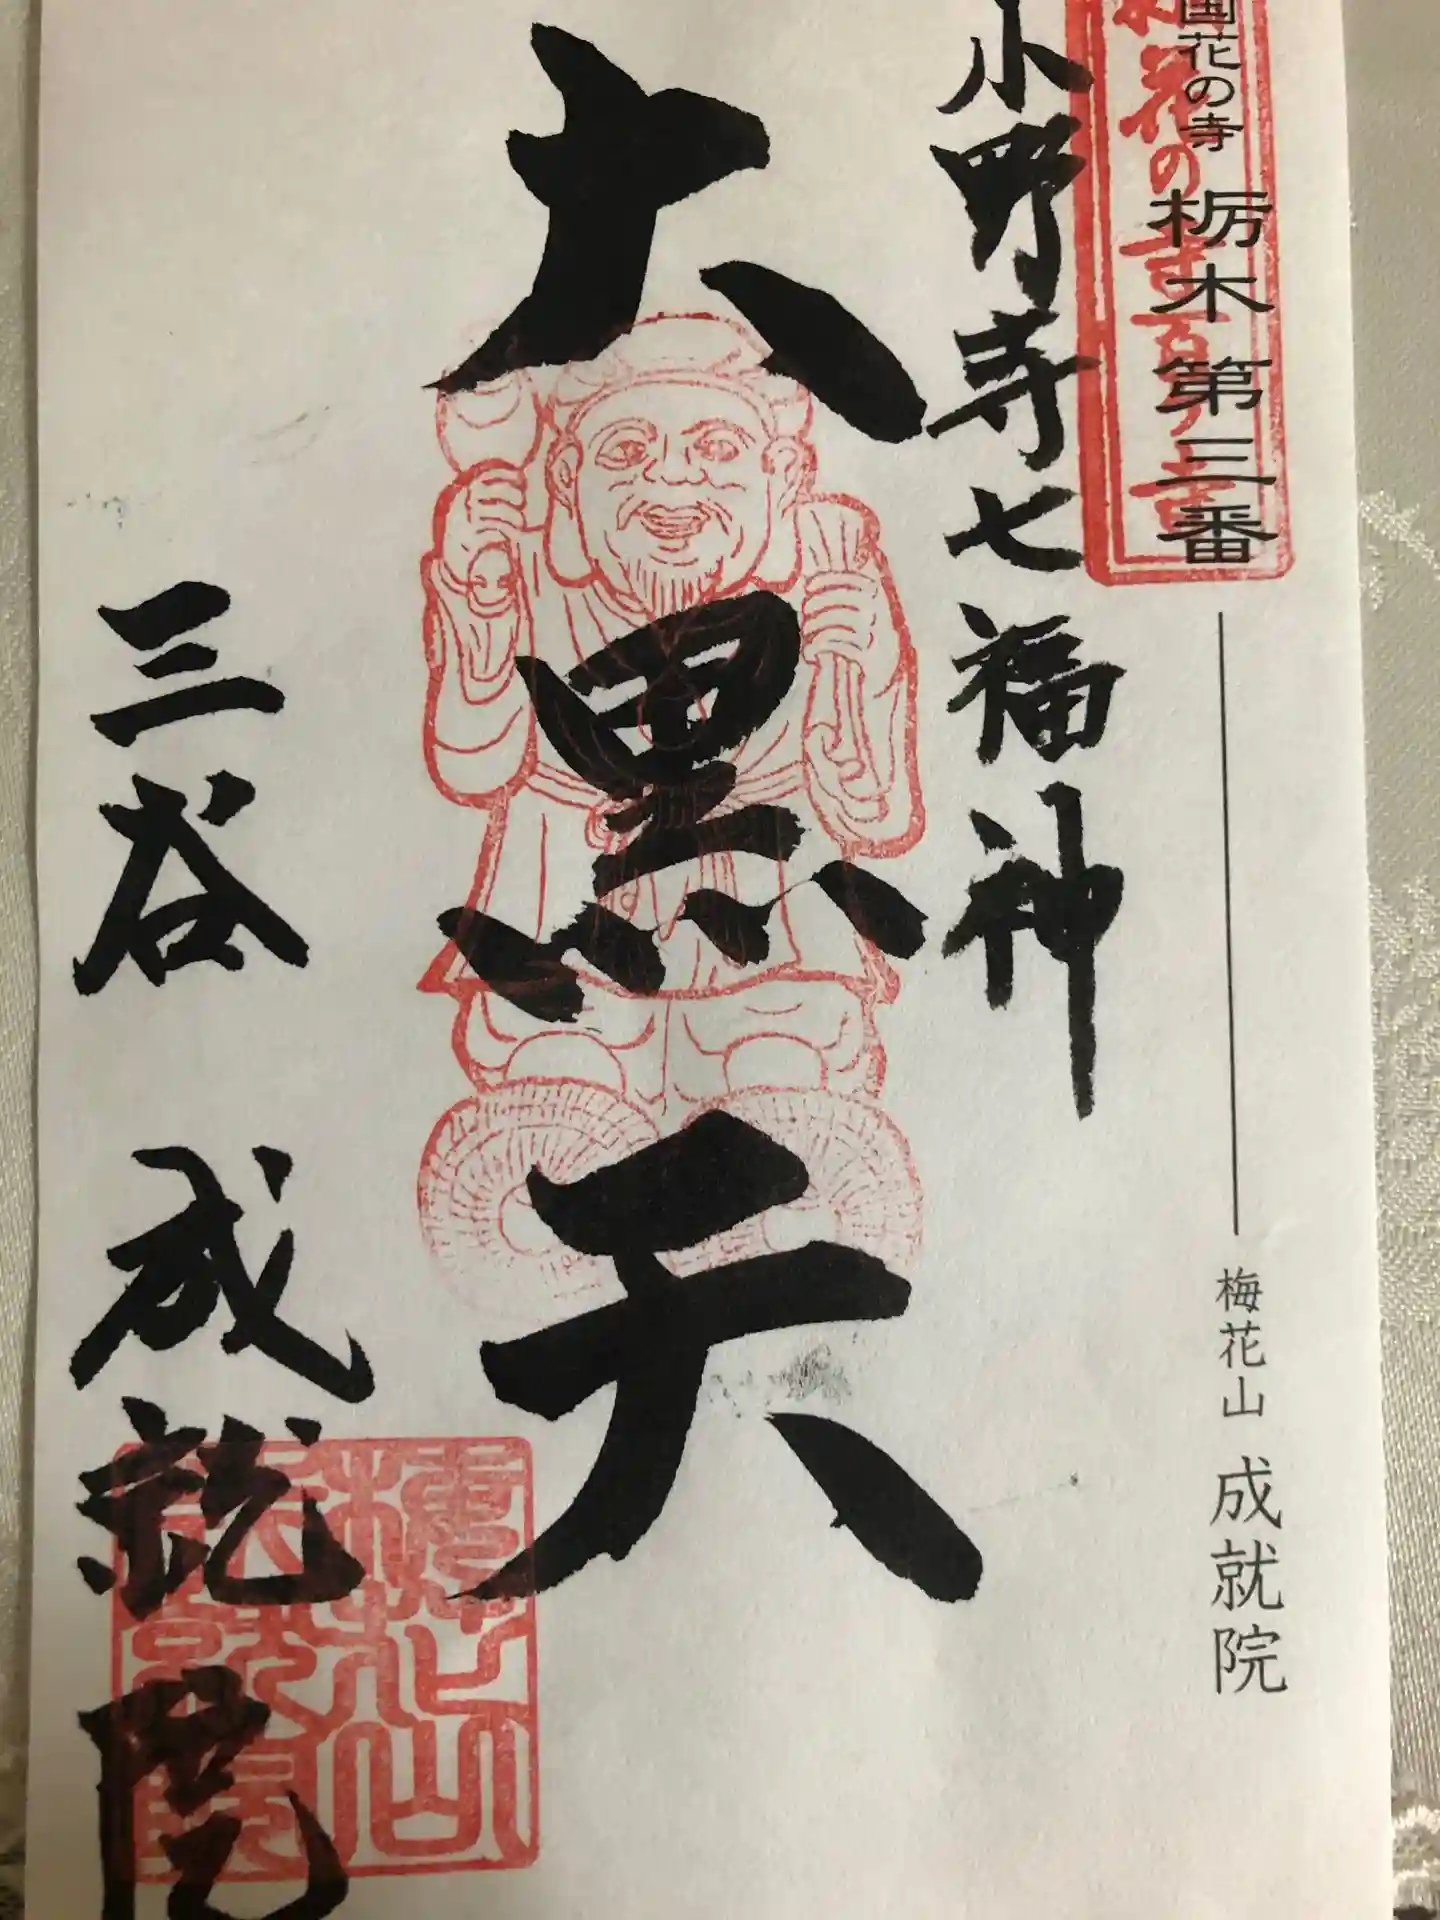 国花の寺 栃木第三番
梅花山 成就院
小野寺七福神
大黒天
三谷 成就院